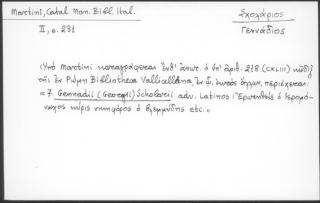 Martini, Catal. Man. Bibl. Ital.
II, σ. 231
Σχολάριος
Γεννάδιος
(Ὑπὸ Martini καταγράφεται ὑπ' ἀριθ. 218 (CXLIII) κῶδιξ
τῆς ἐν Ρώμῃ Bibliotheca Vallicellana, ἐν ᾧ, ἐκτὸς ἄλλων, περιέχεται:
« 7. Gennadii (Georgii) Scholarii adv. Latinos: Ἐρωτηθεὶς ὁ ἱερομό-
ναχος κύρις νικηφόρος ὁ βλεμμύδης etc.»